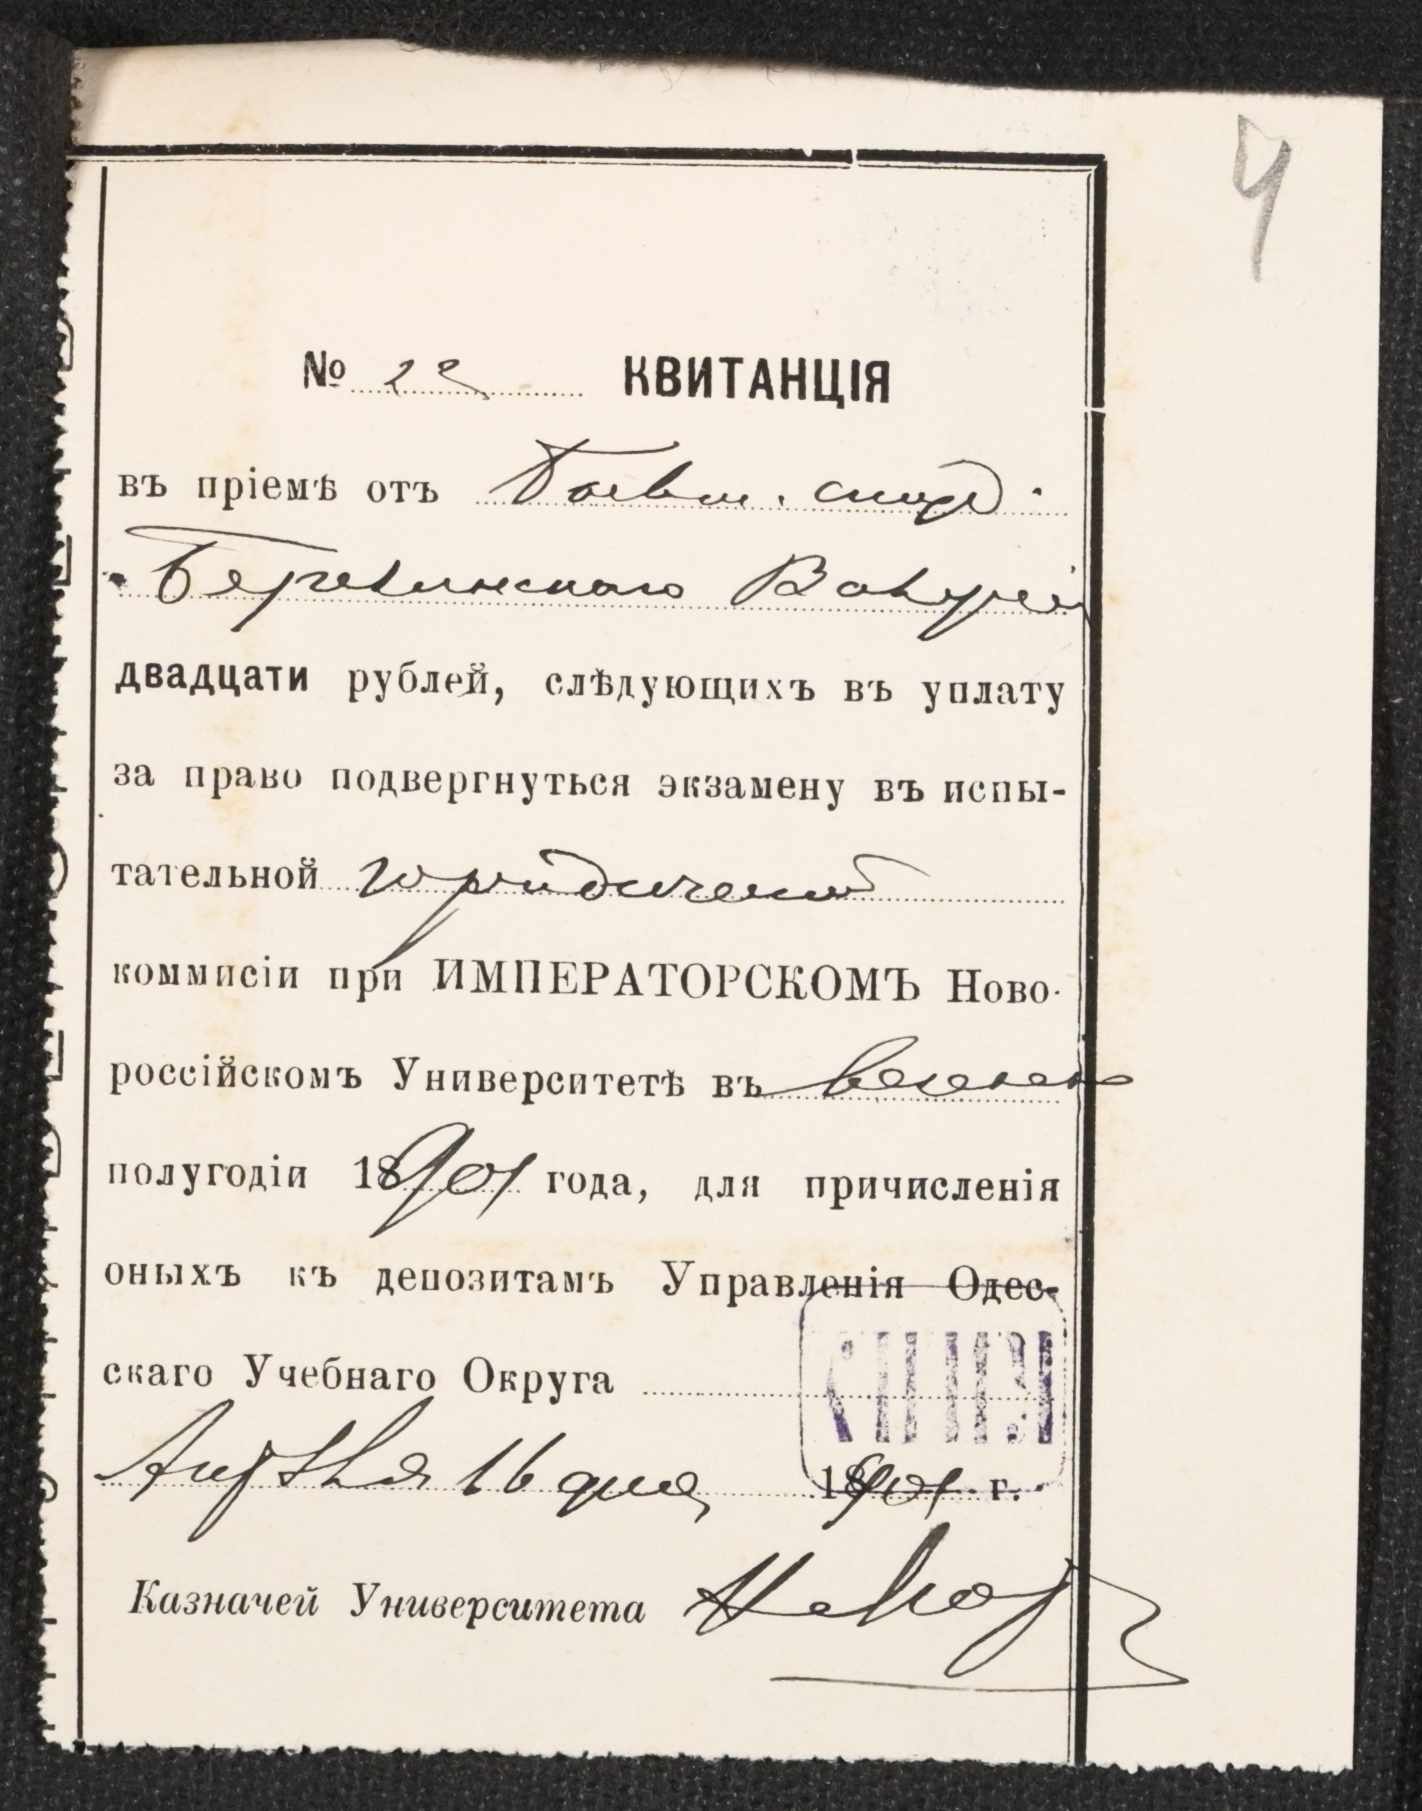 4
№ 22 КВИТАНЦІЯ
въ пріемѣ отъ Бывш. студ.
двадцати рублей, слѣдующихъ въ уплату
за право подвергнуться экзамену въ испы-
тательной юридической
коммисіи при ИМПЕРАТОРСКОМЪ Ново-
россійскомъ Университетѣ въ весенн
полугодіи 18901 года, для причисленія
оныхъ къ депозитамъ Управленія Одес-
скаго Учебнаго Округа
Апрѣля 16 дня 18901 г.
Казначей Университета